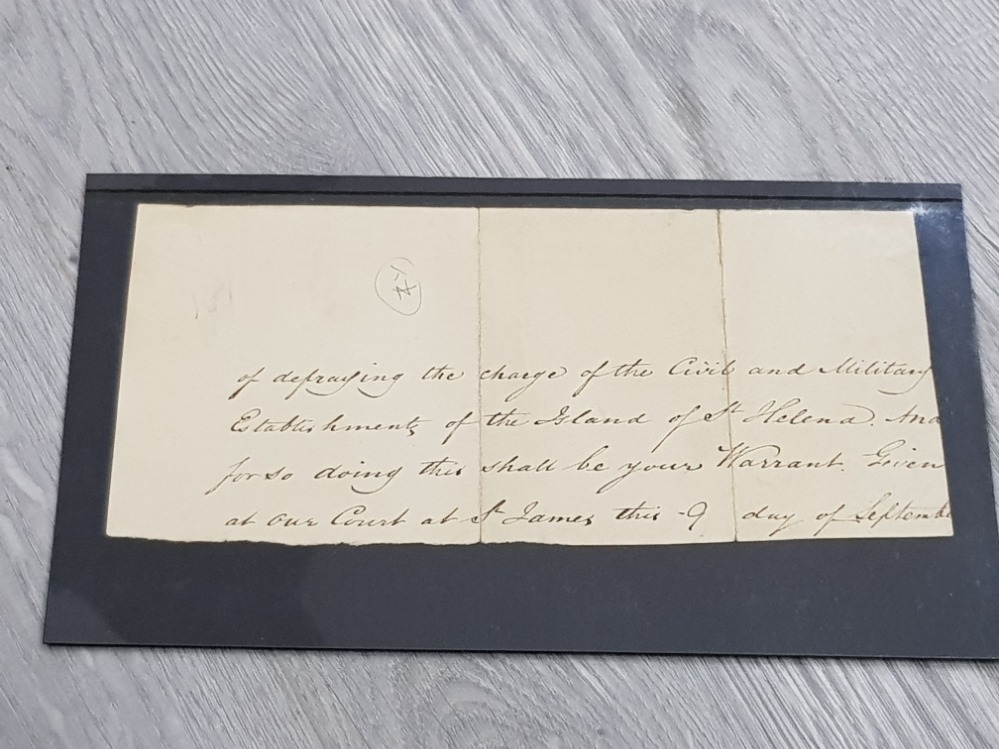 of defraying the charge of the Civil and Military
Establishments of the Island of St Helena. And
for so doing this shall be your Warrant. Given
at our Court at St James this 9 day of Septembe